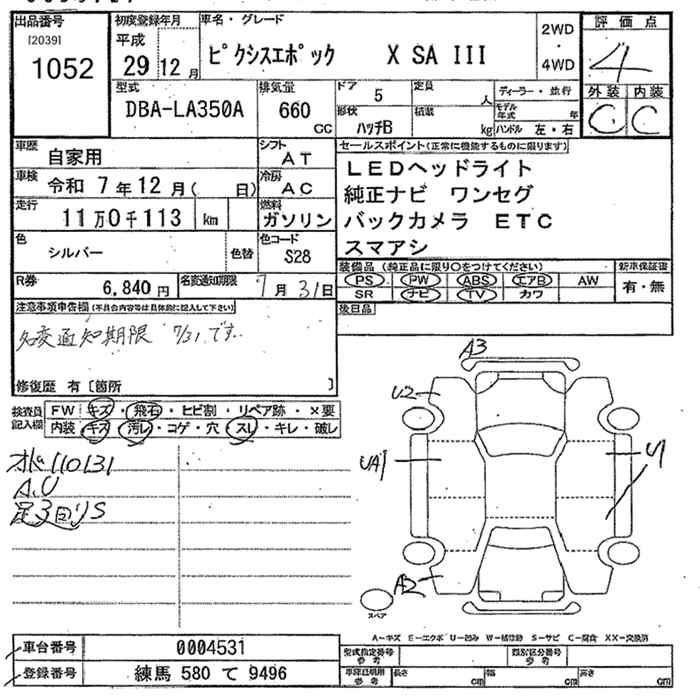 出品番号
[2039]
1052
初度登録年月
平成
29 12 月
車名・グレード
ピクシスエポック X SA III
2WD
4WD
評価点
4
外装 内装
C C
型式
DBA-LA350A
排気量
660
cc
ドア
5
定員
人
形状
ハッチB
積載
kg
ディーラー・並行
モデル年式 年
ハンドル 左・右
車歴
自家用
シフト
AT
車検
令和 7年12月( 日)
冷房
AC
走行
11万0千113 km
燃料
ガソリン
色
シルバー
色替
色コード
S28
R券
6,840円
名変通知期限
7月31日
セールスポイント(正常に機能するものに限ります)
LEDヘッドライト
純正ナビ ワンセグ
バックカメラ ETC
スマアシ
装備品 (純正品に限り○をつけてください)
PS PW ABS エアB AW
SR ナビ TV カワ
新車保証書
有・無
後日品
注意事項申告欄(不具合内容等は具体的に記入して下さい)
名変通知期限 7/31です。
修復歴 有〔箇所 〕
検査員記入欄
FW キズ・飛石・ヒビ割・リペア跡・×要
内装 キズ・汚レ・コゲ・穴・スレ・キレ・破レ
オドー110131
A.U
足3回りS
A3
U2
UA1
U1
A2
スペア
A-キズ E-エクボ U-凹み W-補修跡 S-サビ C-腐食 XX-交換済
車台番号 0004531
登録番号 練馬 580 て 9496
型式指定番号 参考
類別区分番号 参考
車庫証明用 参考
長さ cm
幅 cm
高さ cm